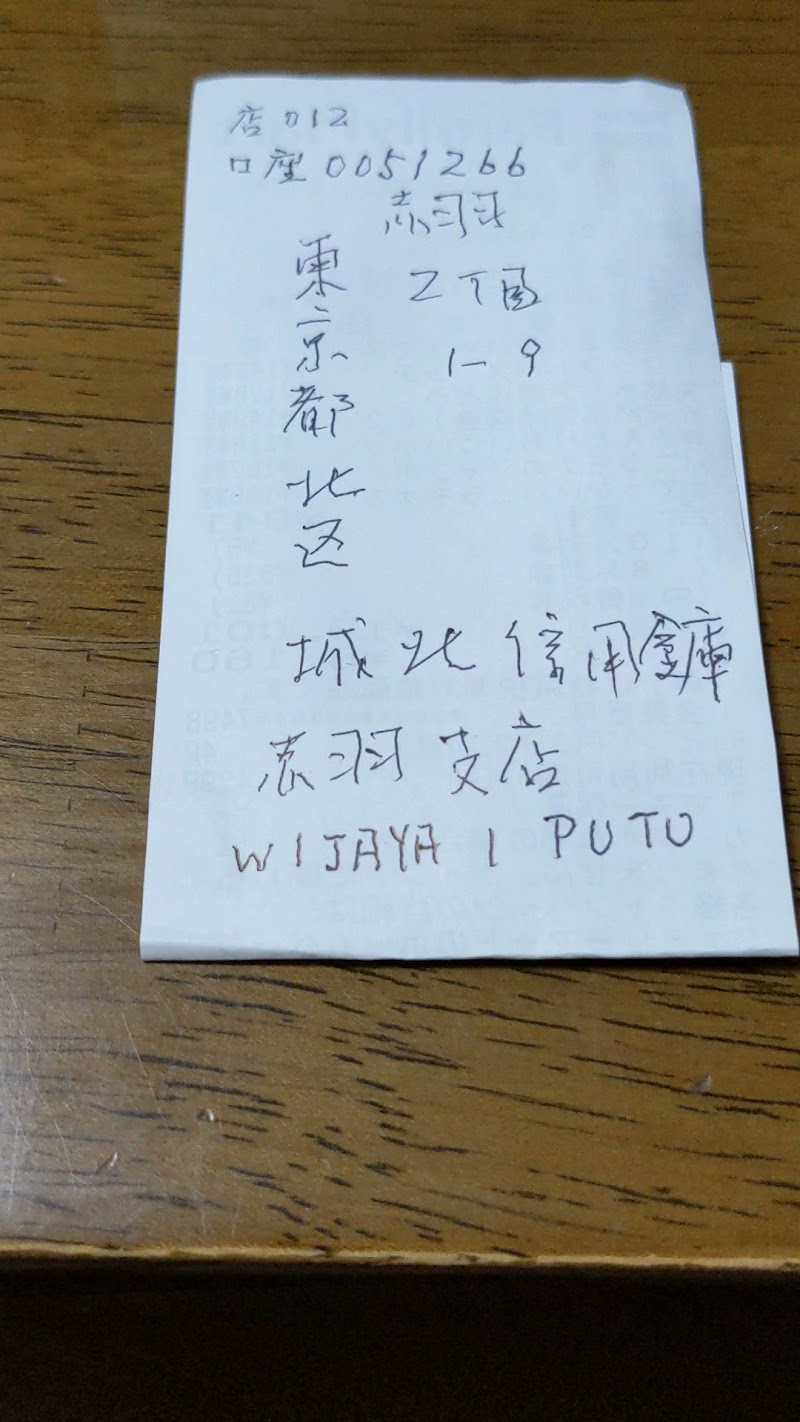 店012
口座0051266
赤羽
東京都北区
2丁目
1-9
城北信用金庫
赤羽支店
WIJAYA I PUTU